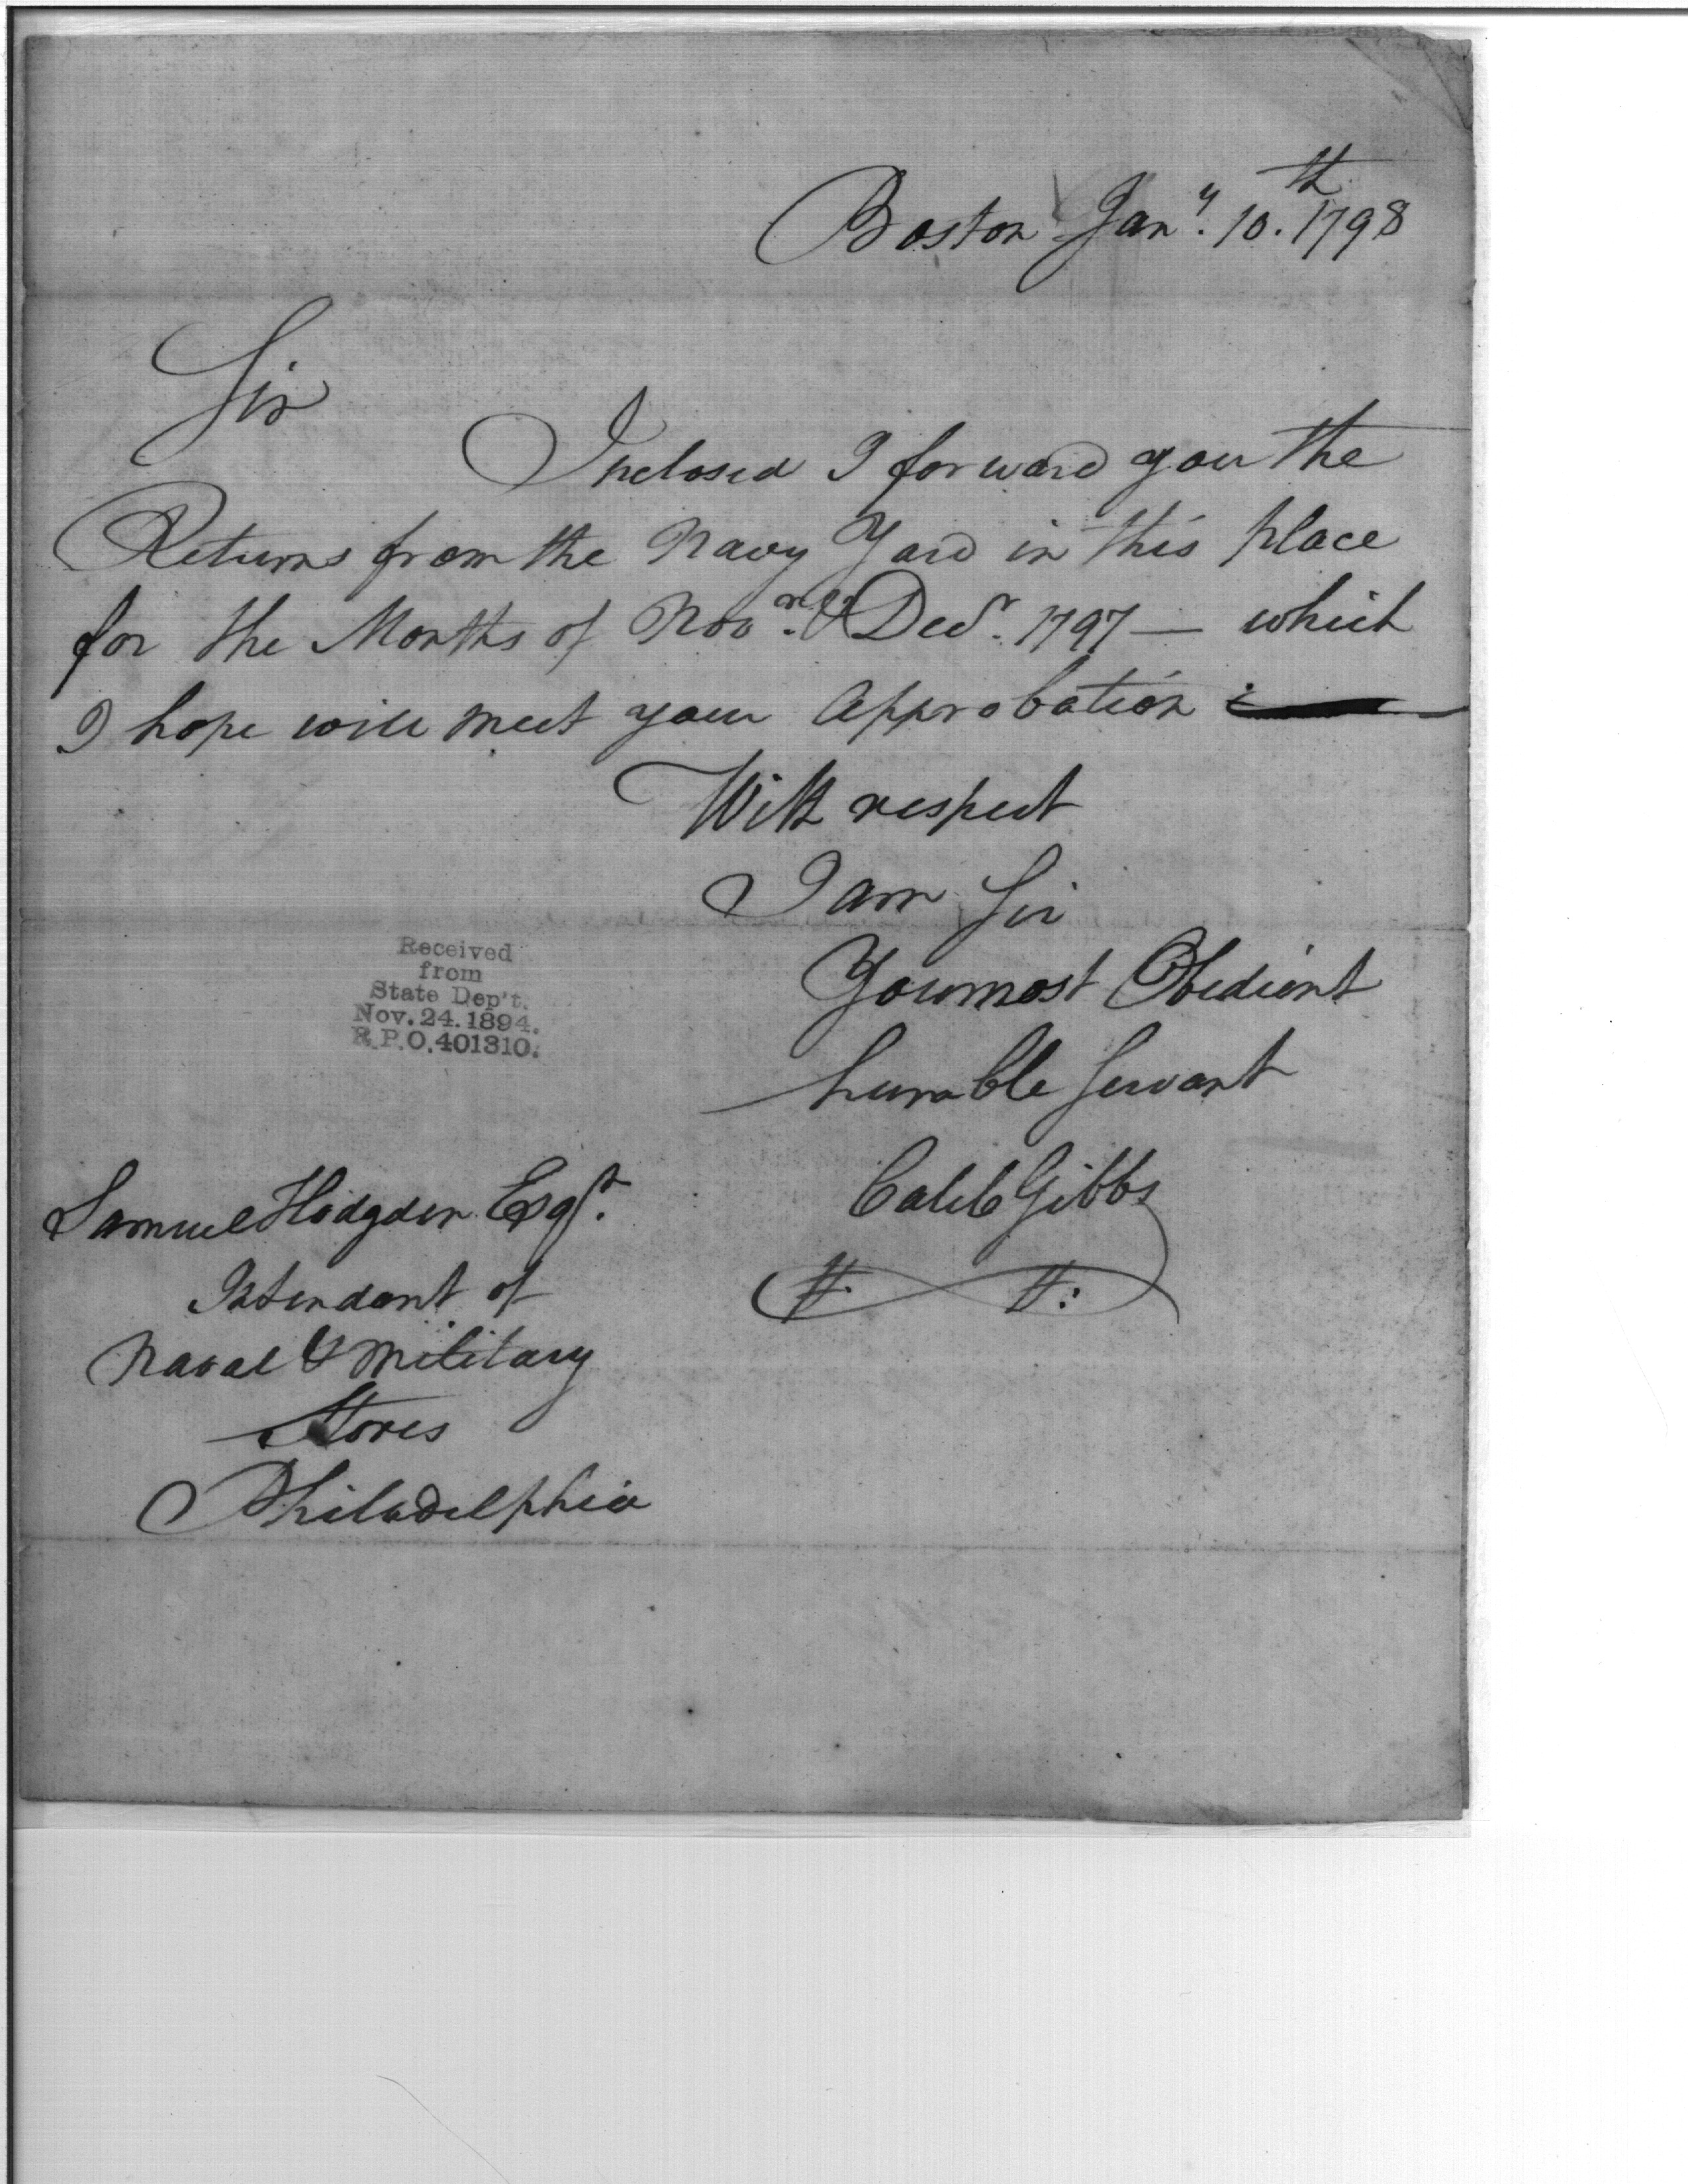 Boston Jany. 10.th 1798
Sir
Inclosed I forward you the
Returns from the Navy Yard in this place
for the Months of Novr. & Decr. 1797 — which
I hope will meet your Approbation
With respect
I am Sir
Your most Obedient
humble Servant
Caleb Gibbs
Received
from
State Dep't.
Nov. 24. 1894.
R.P.O. 401310.
Samuel Hodgden Esqr.
Intendant of
Naval & Military
Stores
Philadelphia